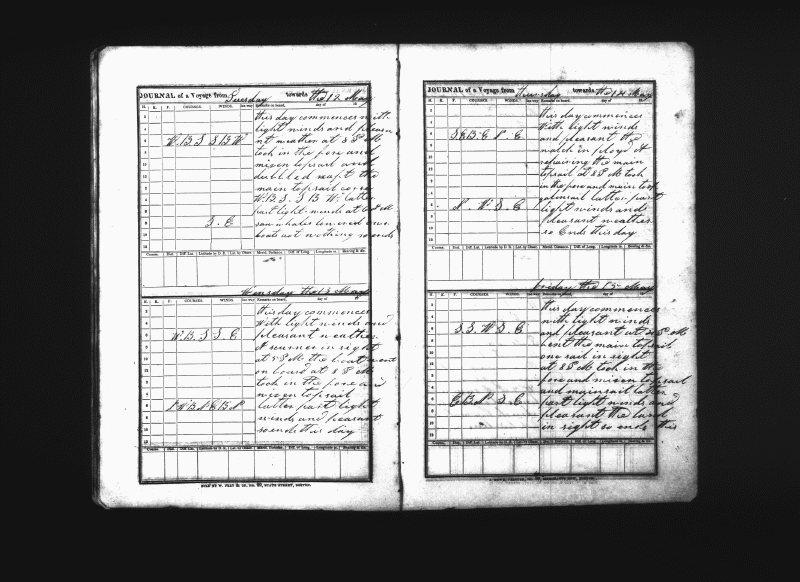 JOURNAL of a Voyage from Tuesday towards the 12 May
H. K. F. COURSES. WINDS. Remarks on board, day of 18
this day commences with
light winds and pleasa
W.B.S S B W nt weather at 8 P M
tock in the fore and
mizen topsail and
dubbled reapt the
main topsail
W.B.S. S B W. latter
part light winds at 6 A M
saw whales lowered
S. E boats got nothing so ends
Course. Dist. Diff. Lat. Latitude by D. R. Lat. by Obser. Merid. Distance. Diff. of Long. Longitude in. Bearing & dis.
Wensday the 13 May
H. K. F. COURSES. WINDS. Remarks on board, day of
this day commences
With light winds and
W.B.S S. E pleasant weather
A scunner in sight
at 5 P M the boat went
on board at 8 P M
toch in the fore and
mizen topsail
N W B N E B N latter part light
winds and pleasant
so ends this day
Course. Dist. Diff. Lat. Latitude by D. R. Lat. by Obser. Merid. Distance. Diff. of Long. Longitude in. Bearing & dis.
SOLD BY STATE STREET, BOSTON.
JOURNAL of a Voyage from Thursday towards the 14 May
H. K. F. COURSES. WINDS. Remarks on board, day of 18
this day commences
With light winds
S.E B. E N. E and pleasant the
watch in ployd At
repairing the main
topsail at 8 P M toch
in the fore and main top
galansail latter part
N. W. S. E light winds and
pleasant weather
so Ends this day
Course. Dist. Diff. Lat. Latitude by D. R. Lat. by Obser. Merid. Distance. Diff. of Long. Longitude in. Bearing & dis.
Friday the 15 May
H. K. F. COURSES. WINDS. Remarks on board, day of
this day commences
with light winds
S. S. W S. E and pleasant at 4 P M
bent the main topsail
one sail in sight
at 8 P M toch in the
fore and mizen topsail
and mainsail latter
E B N S. E part light winds and
pleasant the land
in sight so ends this
Course. Dist. Diff. Lat. Latitude by D. R. Lat. by Obser. Merid. Distance. Diff. of Long. Longitude in. Bearing & dis.